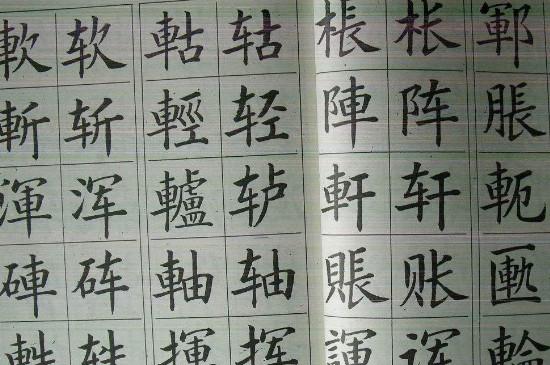 軟 软 軲 轱 棖 枨 鄆
斬 斩 輕 轻 陣 阵 脹
渾 浑 轤 轳 軒 轩 軛
硨 砗 軸 轴 賬 账 匭
揮 挥 諢 诨 輪